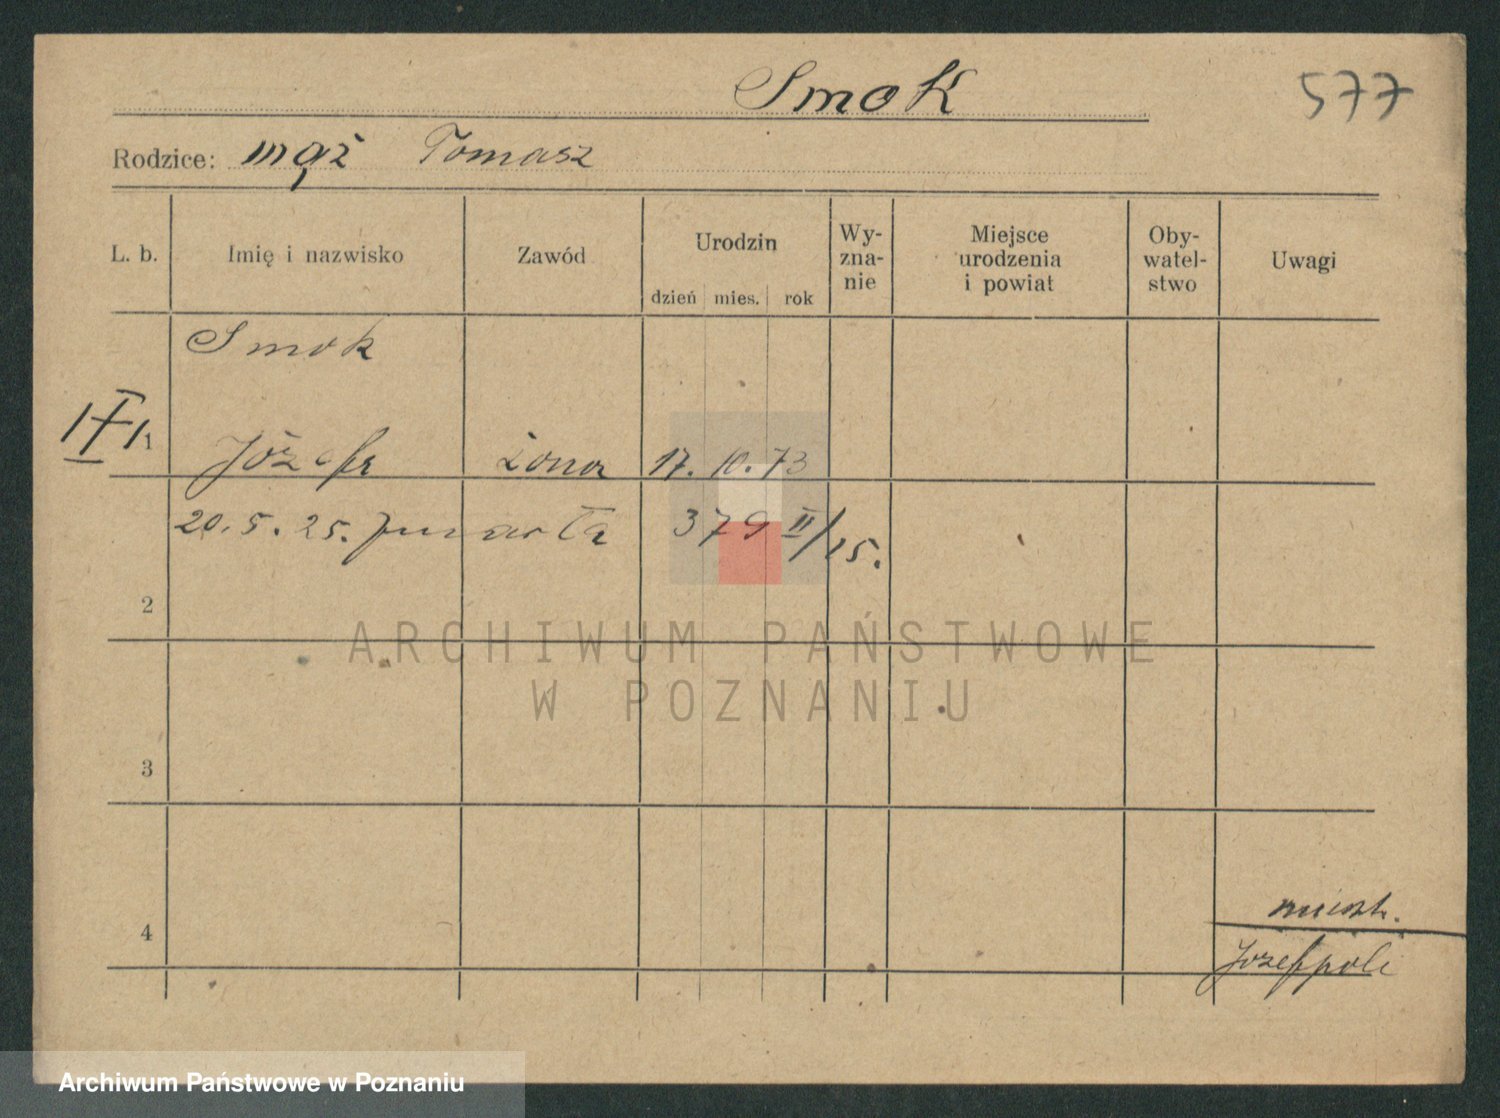 Smok 577
Rodzice: mąż Tomasz
L. b. Imię i nazwisko Zawód Urodzin Wy-zna-nie Miejsce urodzenia i powiat Oby-watel-stwo Uwagi
dzień mies. rok
Smok
1 Józefa żona 17. 10. 73
20. 5. 25. zmarła 379 II/15.
2
ARCHIWUM PAŃSTWOWE
W POZNANIU
3
4
mieszk.
Józefpole
Archiwum Państwowe w Poznaniu